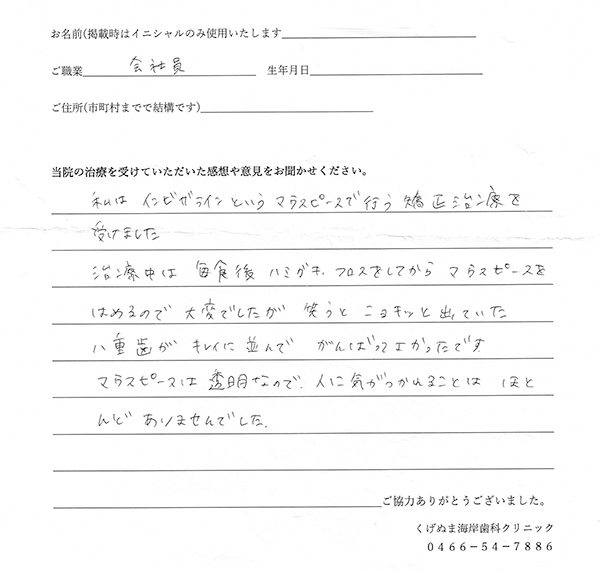 お名前(掲載時はイニシャルのみ使用いたします
ご職業 会社員 生年月日
ご住所(市町村までで結構です)
当院の治療を受けていただいた感想や意見をお聞かせください。
私は インビザラインという マウスピースで行う 矯正治療を
受けました
治療中は 毎食後 ハミガキ、フロスをしてから マウスピースを
はめるので 大変でしたが 笑うと ニョキッと出ていた
八重歯が キレイに並んで がんばってよかったです
マウスピースは 透明なので、人に気がつかれることは ほと
んど ありませんでした.
ご協力ありがとうございました。
くげぬま海岸歯科クリニック
0466-54-7886